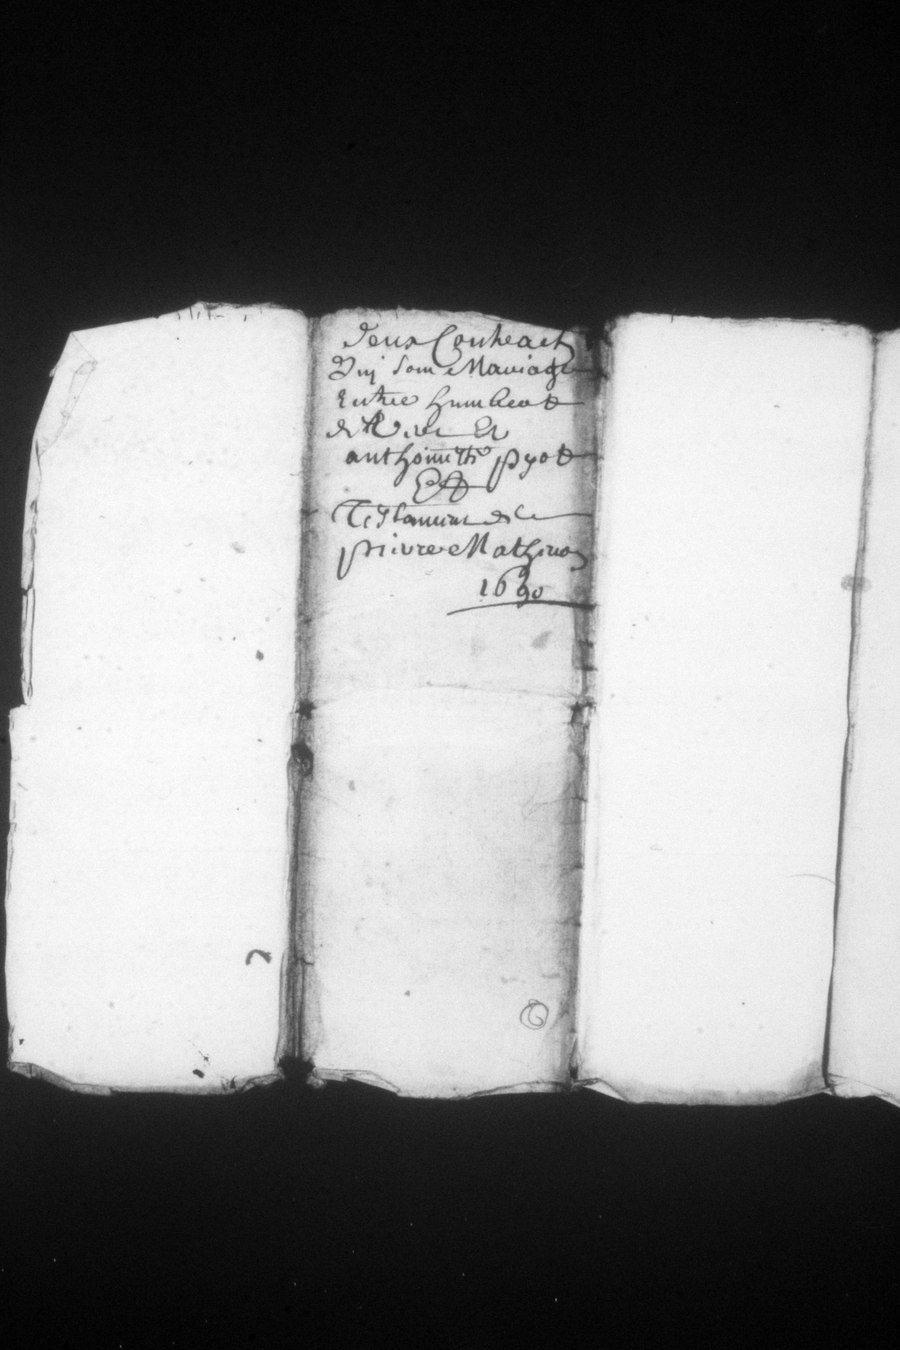 Deux Contract
Duj Som Mariage
Entre humbert
de Et
anthoinette pyot
Et
Testament de
pierre Mathieu
1690